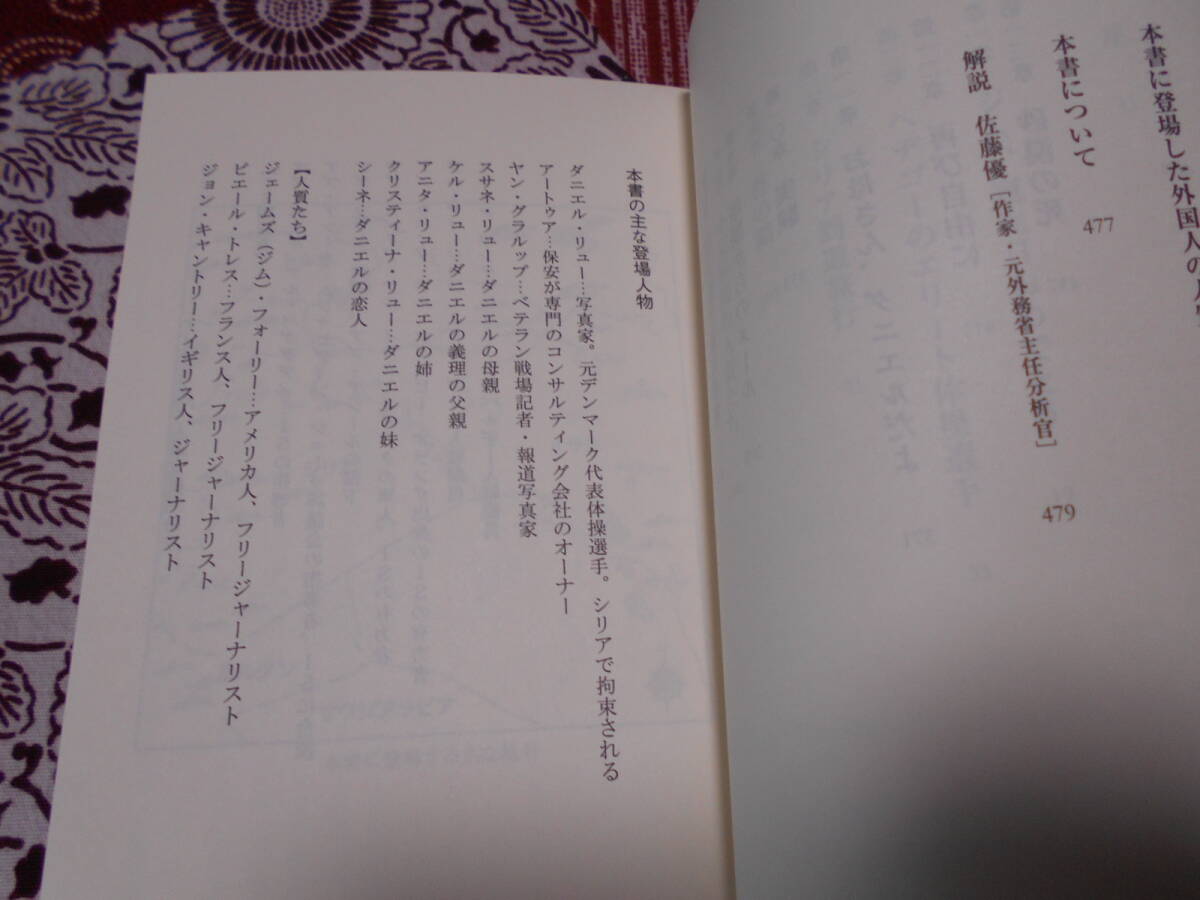 本書に登場した外国人の
本書について 477
解説 佐藤優［作家・元外務省主任分析官］ 479
本書の主な登場人物
ダニエル・リュー…写真家。元デンマーク代表体操選手。シリアで拘束される
アートゥア…保安が専門のコンサルティング会社のオーナー
ヤン・グラルップ…ベテラン戦場記者・報道写真家
スサネ・リュー…ダニエルの母親
ケル・リュー…ダニエルの義理の父親
アニタ・リュー…ダニエルの姉
クリスティーナ・リュー…ダニエルの妹
シーネ…ダニエルの恋人
【人質たち】
ジェームズ（ジム）・フォーリー…アメリカ人、フリージャーナリスト
ピエール・トレス…フランス人、フリージャーナリスト
ジョン・キャントリー…イギリス人、ジャーナリスト